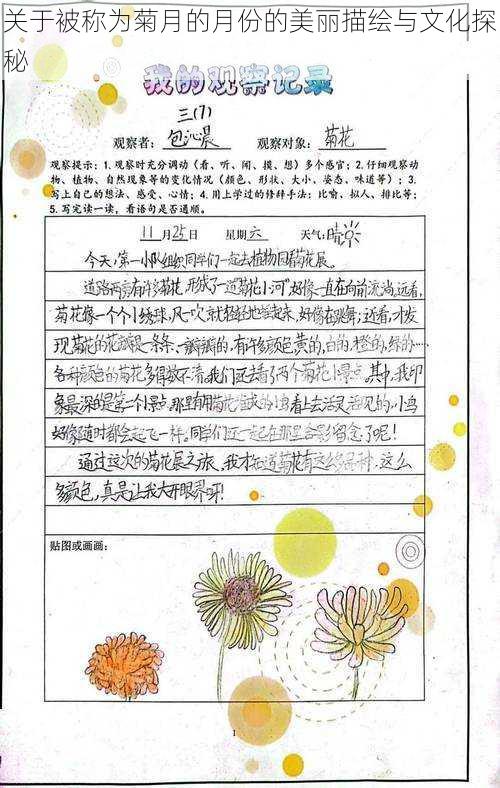 关于被称为菊月的月份的美丽描绘与文化探
秘
我的观察记录
三(7)
观察者：包沁晨 观察对象：菊花
观察提示：1.观察时充分调动（看、听、闻、摸、想）多个感官；2.仔细观察动
物、植物、自然现象等的变化情况（颜色、形状、大小、姿态、味道等）；3.
写上自己的想法、感受、心情；4.用上学过的修辞手法：比喻、拟人、排比等；
5.写完读一读，看语句是否通顺。
11月25日 星期六 天气：晴
今天，第一小队组织同学们一起去植物园看菊花展。
道路两旁有许多菊花，形成了一道"菊花小河"好像一直在向前流淌。远看，
菊花像一个个小绣球，风一吹就轻轻地摇起来，好像在跳舞；近看，才发
现菊花的花瓣是一条条、一瓣瓣的，有许多颜色黄的，白的，橙的，绿的……
各种颜色的菊花多得数不清。我们还去看了两个菊花小景点，其中，我印
象最深的是第一个景点，那里有用菊花造来的小鸟看上去活灵活现的，小鸟
好像随时都会起飞一样。同学们还一起在那里合影留念了呢！
通过这次的菊花展之旅，我才知道菊花有这么多品种，这么
多颜色，真是让我大开眼界呀！
贴图或画画：
1